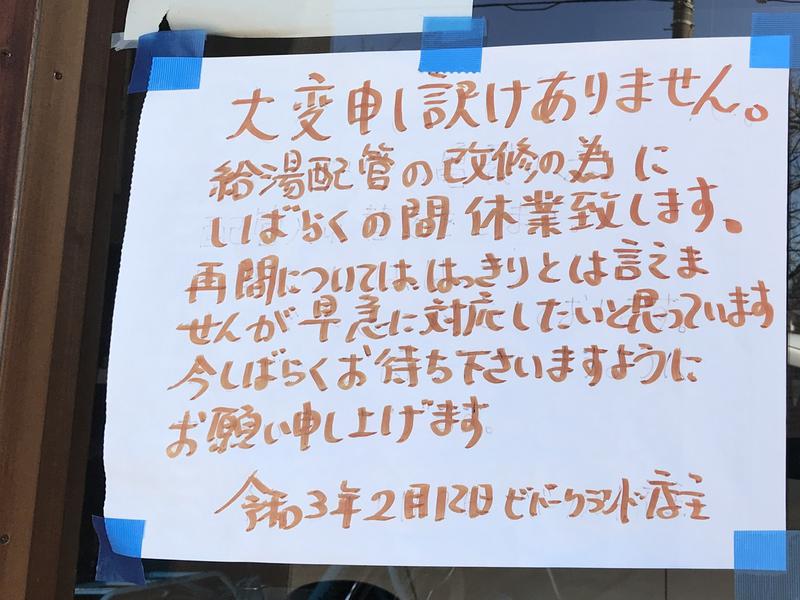 大変申し訳けありません。
給湯配管の改修の為に
しばらくの間休業致します。
再開については、はっきりとは言えま
せんが早急に対応したいと思っています
今しばらくお待ち下さいますように
お願い申し上げます
令和3年2月12日 店主